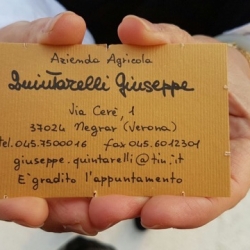 Azienda Agricola
Quintarelli Giuseppe
Via Cerè, 1
37024 Negrar (Verona)
tel. 045.7500016 fax 045.6012301
giuseppe.quintarelli@tin.it
E' gradito l'appuntamento